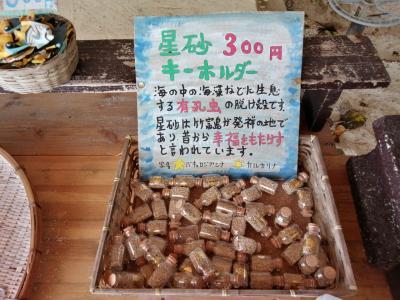 星砂 300円
キーホルダー
海の中の海藻などに生息
する有孔虫の脱け殻です
星砂は竹富島が発祥の地で
あり昔から幸福をもたらす
と言われています。
バキュロジプシナ カルカリナ